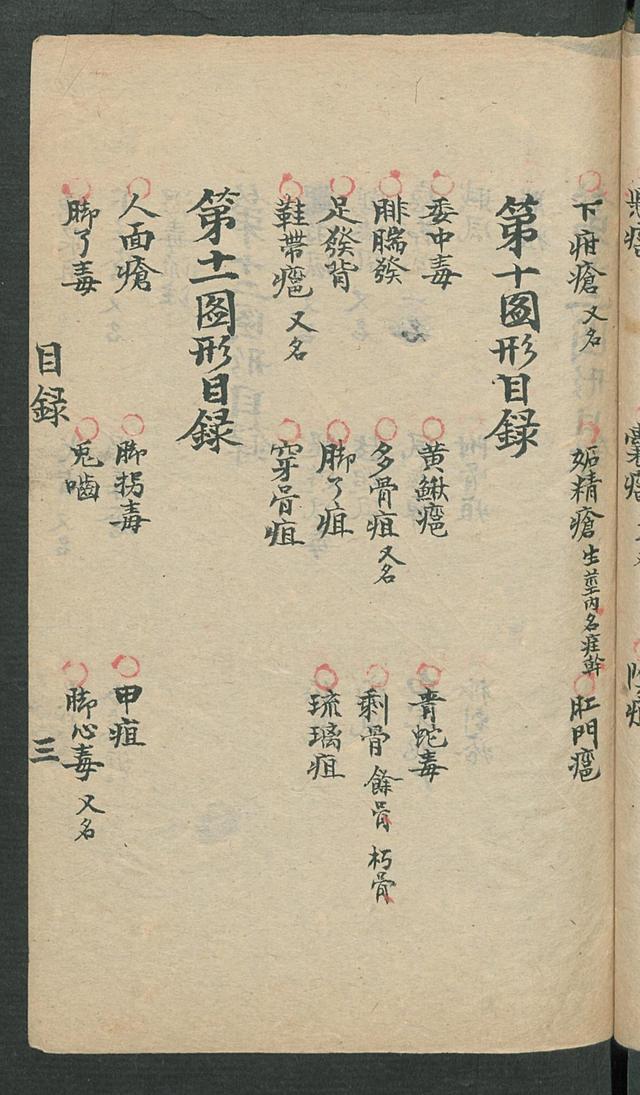 下疳瘡 又名 妬精瘡 生莖內名疰幹 肛門癰
第十图形目録
委中毒 黄鰍癰 青蛇毒
腓腨發 多骨疽 又名 剩骨 餘骨 朽骨
足發背 脚了疽 琉璃疽
鞋帶癰 又名 穿骨疽
第十一图形目録
人面瘡 脚拐毒 甲疽
脚了毒 兎嚙 脚心毒 又名
目録 三